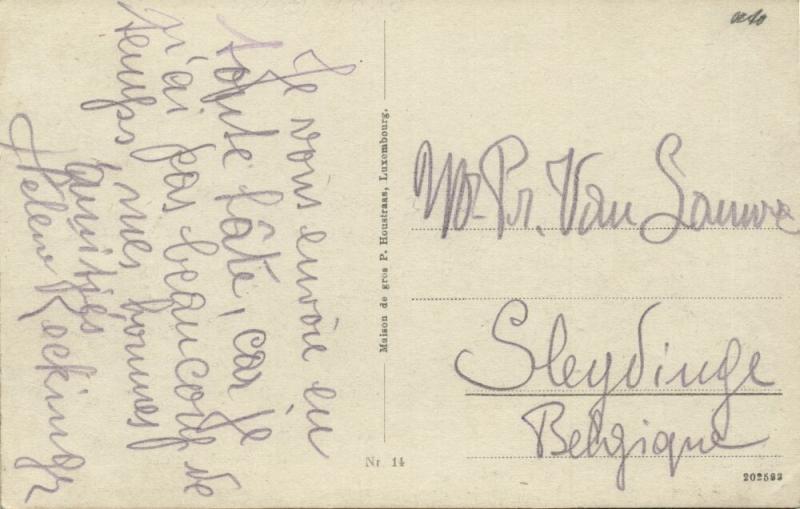 Je vous envoie en
toute hâte, car je
n'ai pas beaucoup de
temps mes bonnes
amitiés
Maison de gros P. Houstraas, Luxembourg.
Nr 14
Mr Pr. Van
Sleydinge
Belgique
202593